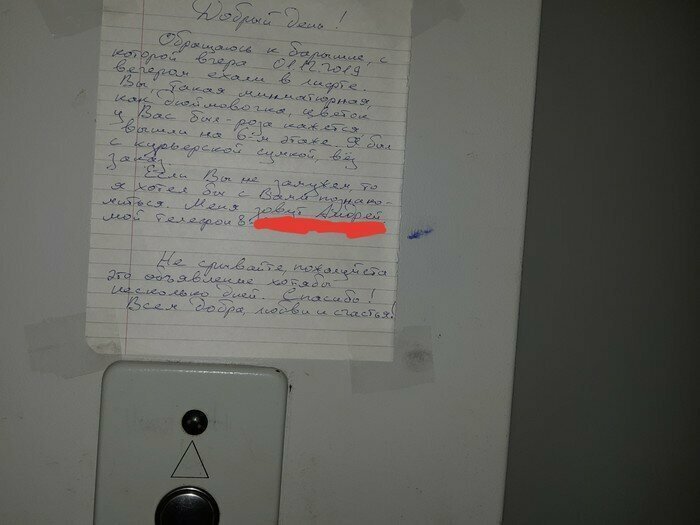 Добрый день!
Обращаюсь к барышне, с
которой вчера 01.12.2019
вечером ехали в лифте.
Вы, такая миниатюрная,
как дюймовочка, цветок
у Вас был-роза кажется
вышли на 6-м этаже. Я был
с курьерской сумкой, вёз
заказ.
Если Вы не замужем то
я хотел бы с Вами познако-
миться. Меня зовут Андрей
мой телефон 8
Не срывайте, пожалуйста
это объявление хотябы
несколько дней. Спасибо!
Всем добра, любви и счастья!